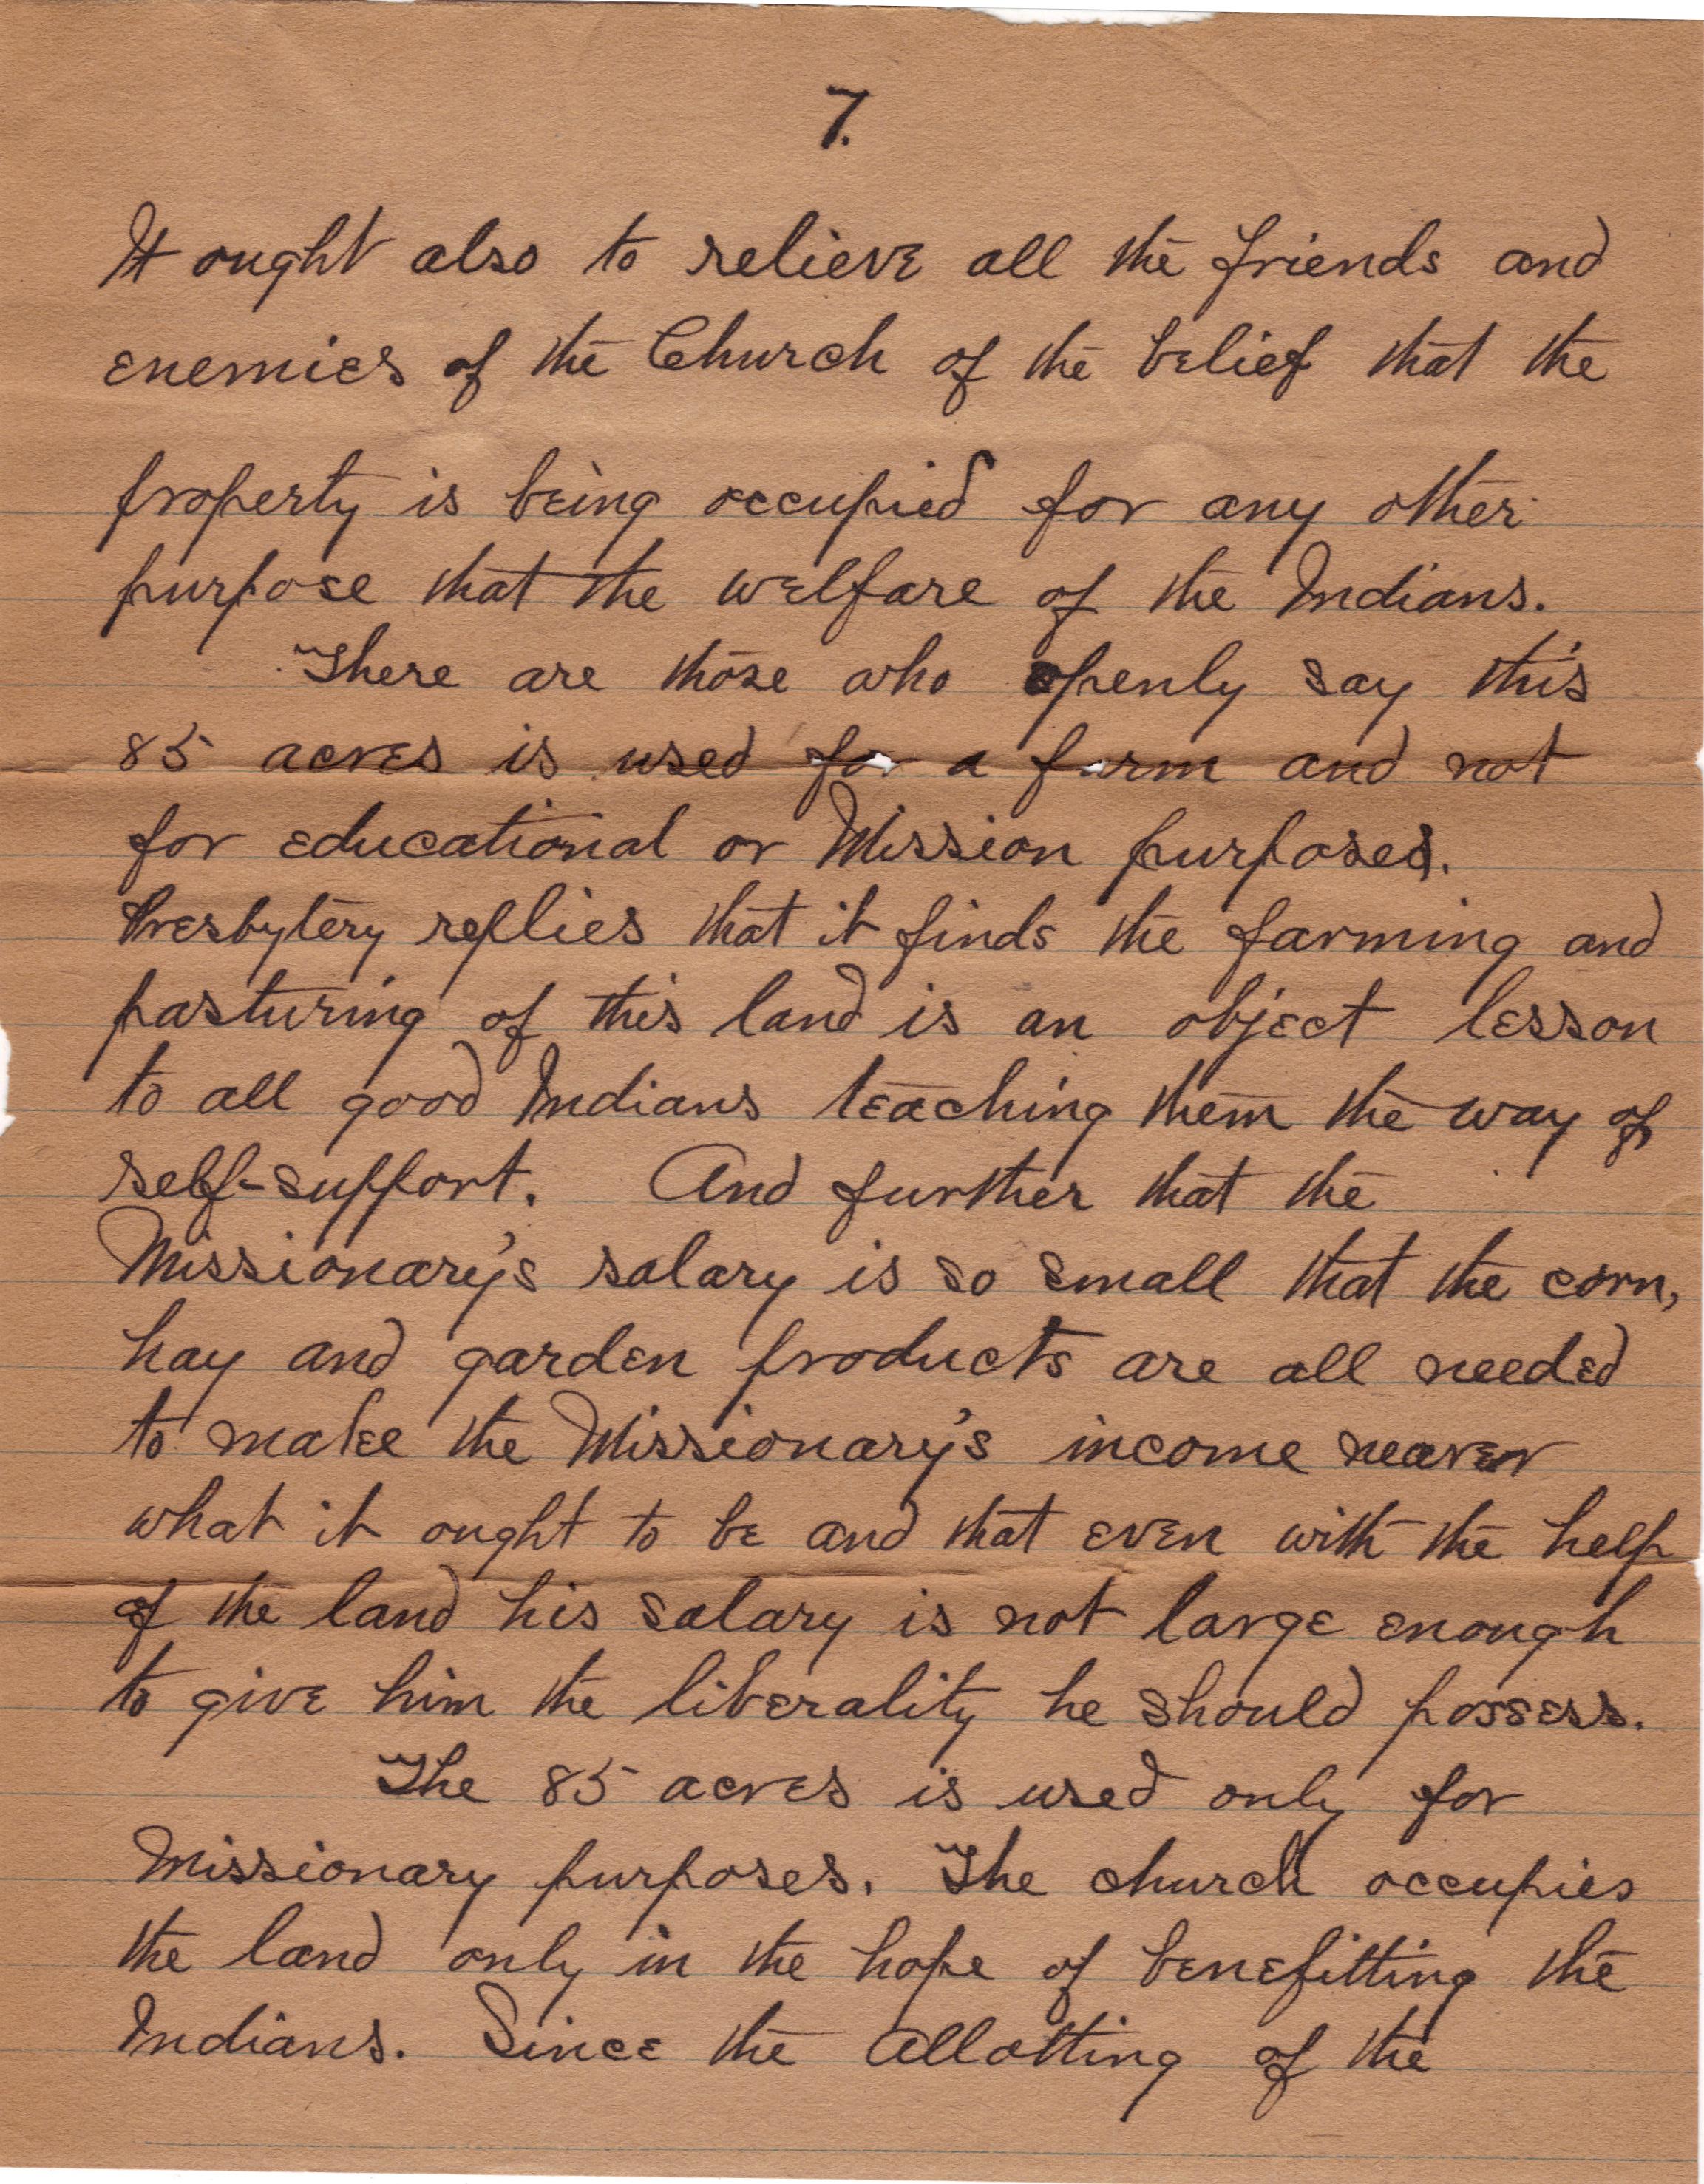 7.
It ought also to relieve all the friends and
enemies of the Church of the belief that the
property is being occupied for any other
purpose that the welfare of the Indians.
There are those who openly say this
85 acres is used for a farm and not
for educational or Mission purposes.
Presbytery replies that it finds the farming and
pasturing of this land is an object lesson
to all good Indians teaching them the way of
self-support. And further that the
Missionary's salary is so small that the corn,
hay and garden products are all needed
to make the Missionary's income nearer
what it ought to be and that even with the help
of the land his salary is not large enough
to give him the liberality he should possess.
The 85 acres is used only for
Missionary purposes. The church occupies
the land only in the hope of benefitting the
Indians. Since the allotting of the